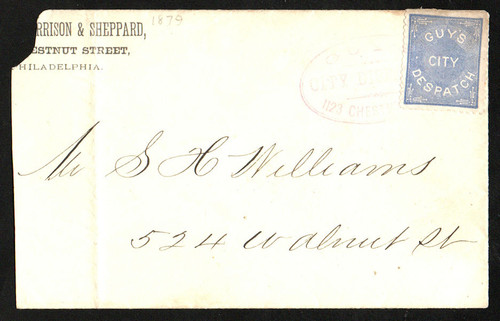 RRISON & SHEPPARD,
ESTNUT STREET,
HILADELPHIA.
1879
GUY'S
CITY
DESPATCH
CITY
1123 CHES
Mr S H Williams
524 Walnut St